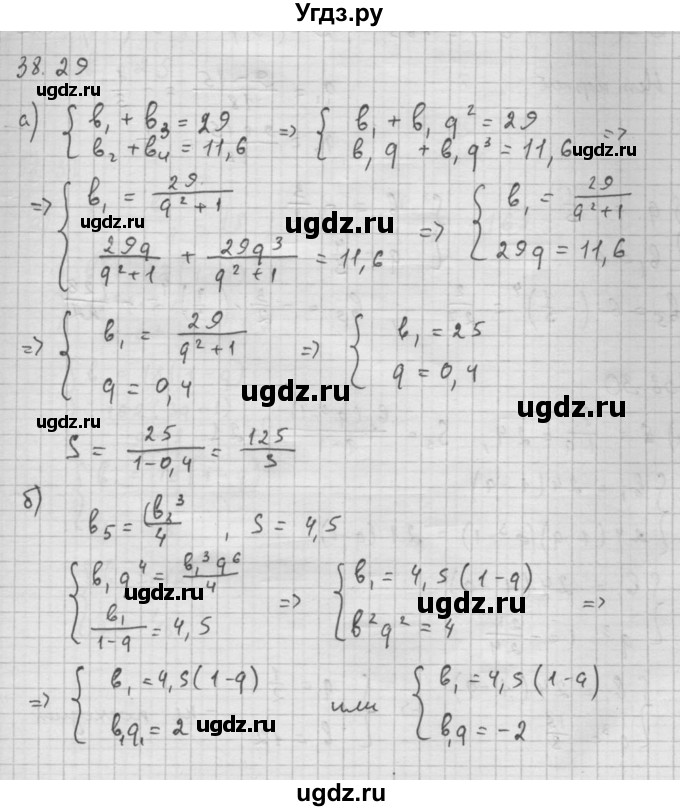 Угдз.ру
38.29
а) { b₁ + b₃ = 29 ; b₂ + b₄ = 11,6 => { b₁ + b₁q² = 29 ; b₁q + b₁q³ = 11,6 =>
ugdz.ru
ugdz.ru
=> { b₁ = 29/(q²+1) ; 29q/(q²+1) + 29q³/(q²+1) = 11,6 => { b₁ = 29/(q²+1) ; 29q = 11,6
ugdz.ru
ugdz.ru
ugdz.ru
=> { b₁ = 29/(q²+1) ; q = 0,4 => { b₁ = 25 ; q = 0,4
ugdz.ru
ugdz.ru
ugdz.ru
S = 25/(1-0,4) = 125/3
б)
b₅ = (b₃³/4 , S = 4,5
{ b₁q⁴ = b₁³q⁶/4 ; b₁/(1-q) = 4,5 => { b₁ = 4,5(1-q) ; b²q² = 4 =>
ugdz.ru
ugdz.ru
=> { b₁ = 4,5(1-q) ; b₁q₁ = 2 или { b₁ = 4,5(1-q) ; b₁q = -2
ugdz.ru